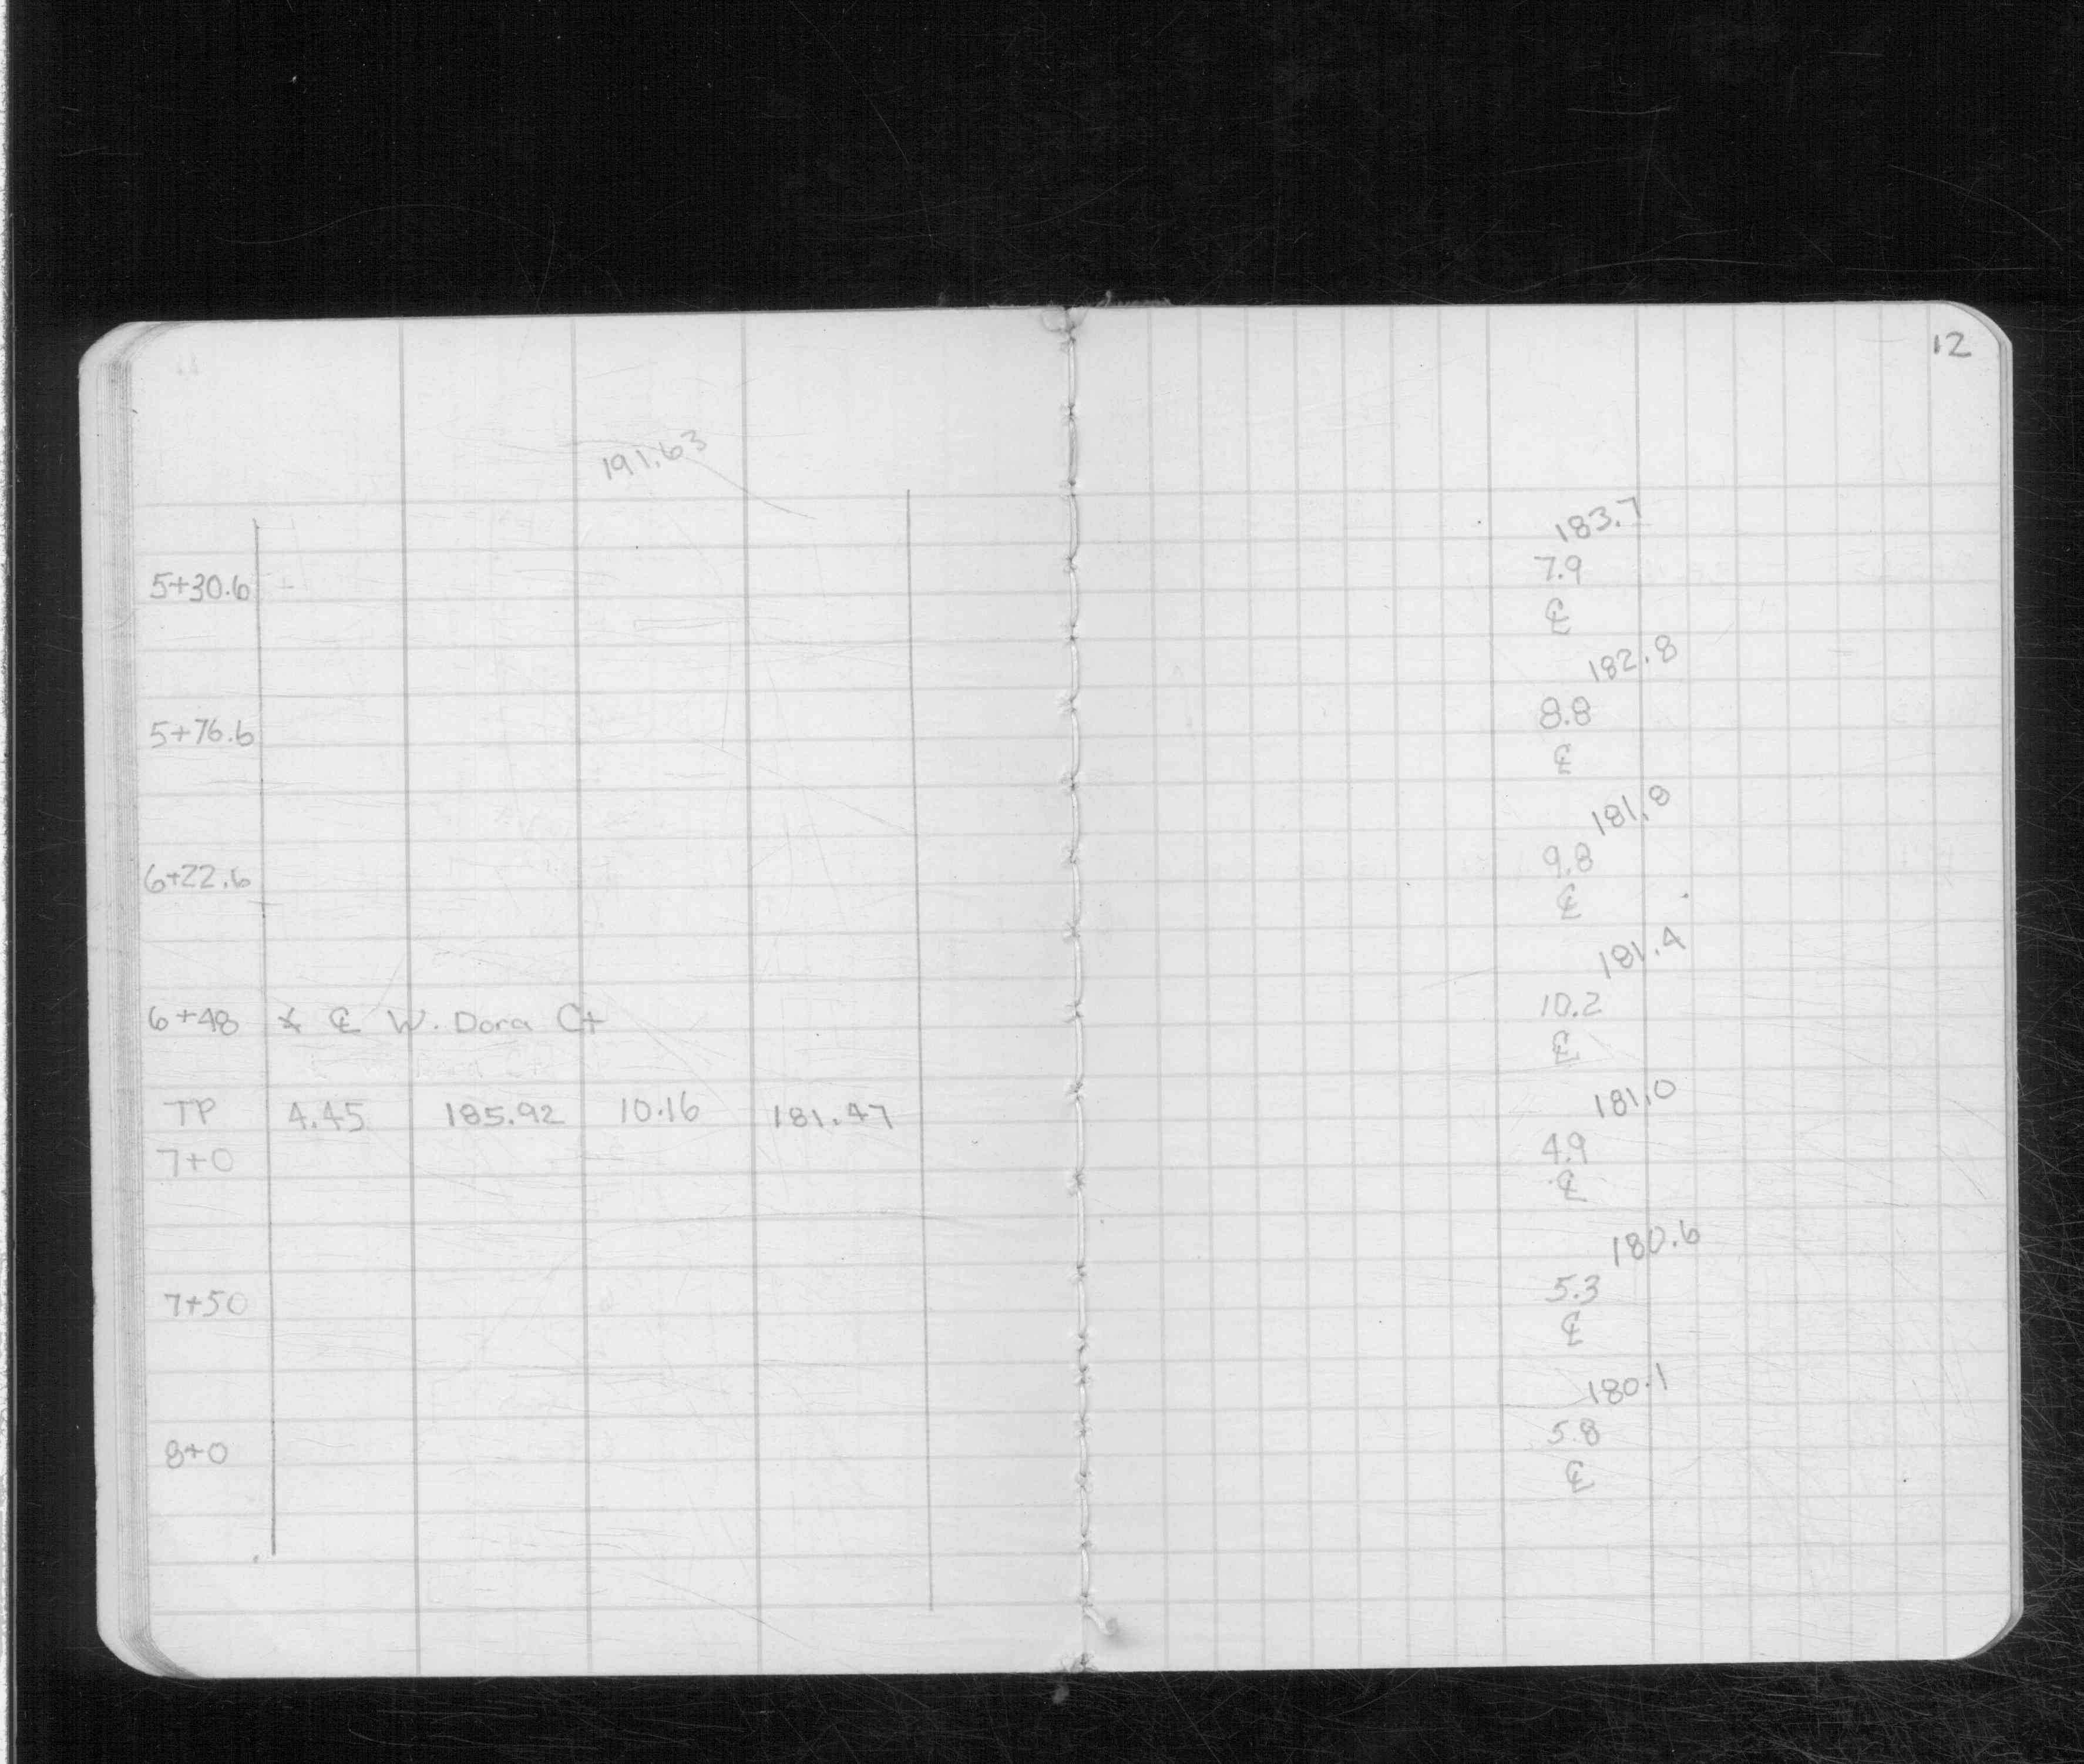 191.63
5+30.6
5+76.6
6+22.6
6+48 ⦣ ℄ W. Dora Ct
TP 4.45 185.92 10.16 181.47
7+0
7+50
8+0
12
183.7
7.9
℄
182.8
8.8
℄
181.8
9.8
℄
181.4
10.2
℄
181.0
4.9
℄
180.6
5.3
℄
180.1
5.8
℄